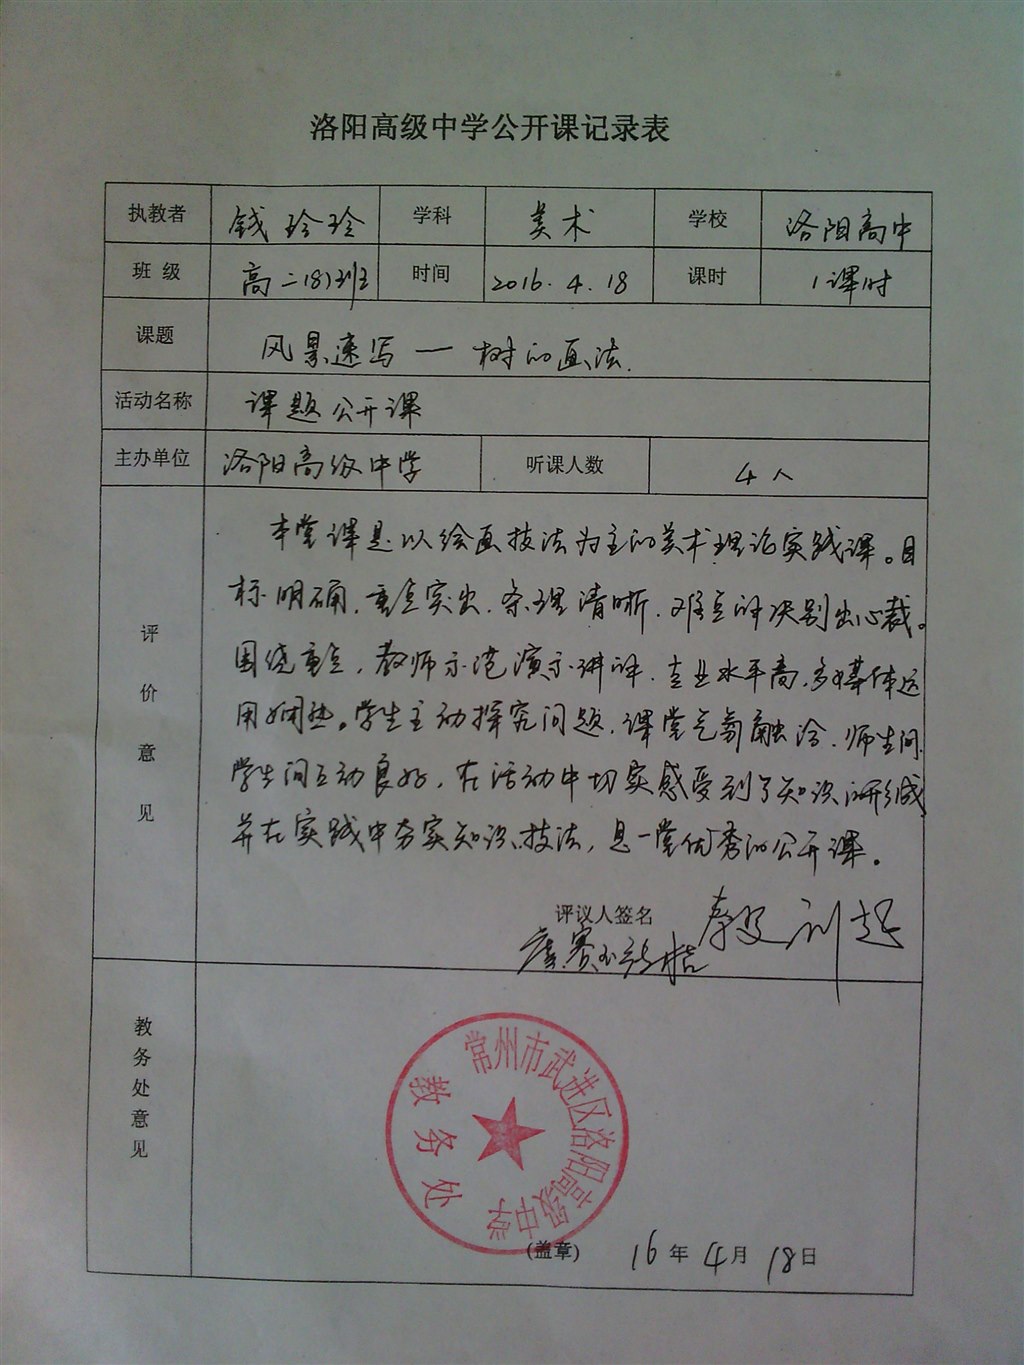 洛阳高级中学公开课记录表
执教者 钱玲玲 学科 美术 学校 洛阳高中
班级 高二(8)班 时间 2016.4.18 课时 1课时
课题 风景速写—树的画法.
活动名称 课题公开课
主办单位 洛阳高级中学 听课人数 4人
评价意见
本堂课是以绘画技法为主的美术理论实践课。目
标明确,重点突出,条理清晰,难点解决别出心裁。
围绕重点,教师示范演示讲评,专业水平高,多媒体运
用娴熟。学生主动探究问题,课堂气氛融洽,师生间,
学生间互动良好,在活动中切实感受到了知识的形成
并在实践中夯实知识、技法,是一堂优秀的公开课。
评议人签名
教务处意见
常州市武进区洛阳高级中学
教务处
(盖章) 16年4月18日